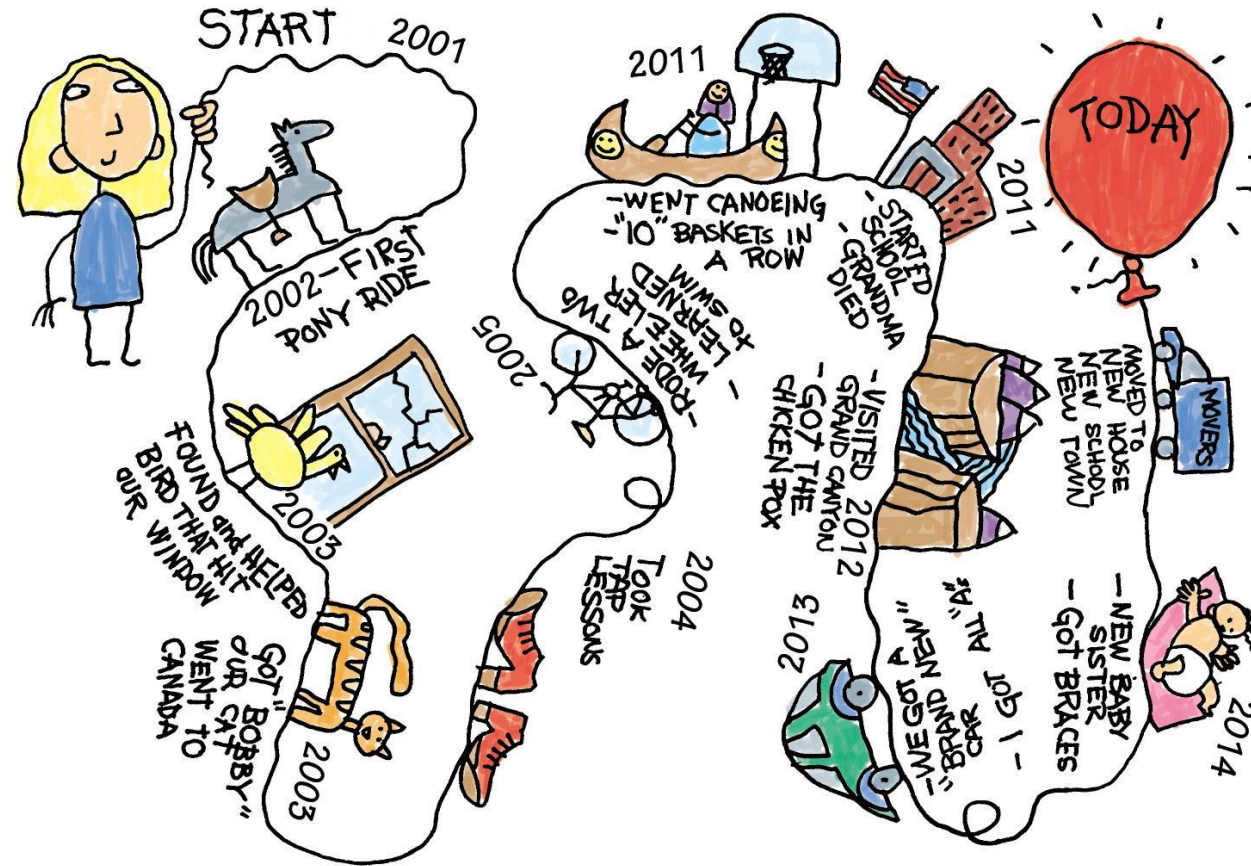 START
2001
2002-FIRST
PONY RIDE
2003
FOUND and HELPED
BIRD THAT HIT
OUR WINDOW
2003
GOT "BOBBY"
OUR CAT
WENT TO
CANADA
2004
TOOK
TAP
LESSONS
2005
-RODE A TWO
WHEELER
- LEARNED
TO SWIM
2011
-WENT CANOEING
-"10" BASKETS IN
A ROW
2011
-STARTED
SCHOOL
-GRANDMA
DIED
-VISITED 2012
GRAND CANYON
-GOT THE
CHICKEN POX
2013
-WE GOT A
"BRAND NEW"
CAR
- I GOT ALL "A's"
2014
-NEW BABY
SISTER
-GOT BRACES
MOVED TO
NEW HOUSE
NEW SCHOOL
NEW TOWN
MOVERS
TODAY